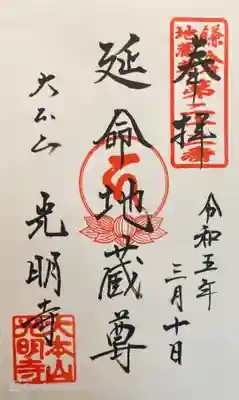 奉拝
鎌倉
地蔵
令和五年
三月十日
延命地蔵尊
大本山
光明寺
大本山
光明寺